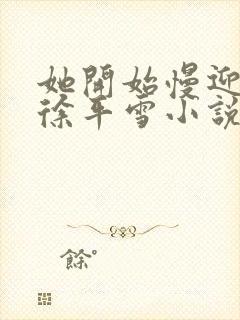 她開始慢迎
徐年雪小說
餘°